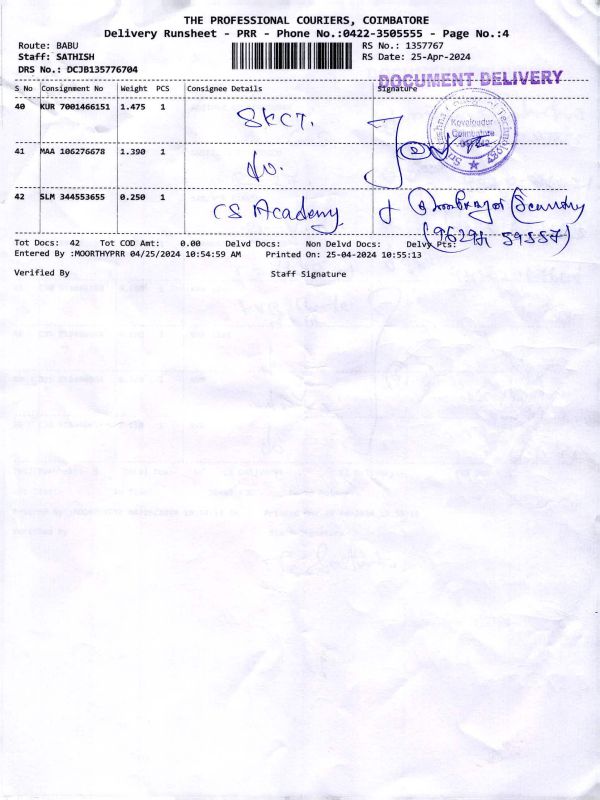 THE PROFESSIONAL COURIERS, COIMBATORE
Delivery Runsheet - PRR - Phone No.:0422-3505555 - Page No.:4
Route: BABU RS No.: 1357767
Staff: SATHISH RS Date: 25-Apr-2024
DRS No.: DCJB135776704
DOCUMENT DELIVERY
S No Consignment No Weight PCS Consignee Details Signature
40 KUR 7001466151 1.475 1 SKCT.
Kovaipudur
Coimbatore
41 MAA 106276678 1.390 1 do.
42 SLM 344553655 0.250 1 CS Academy
Tot Docs: 42 Tot COD Amt: 0.00 Delvd Docs: Non Delvd Docs: Delvy Pts:
Entered By :MOORTHYPRR 04/25/2024 10:54:59 AM Printed On: 25-04-2024 10:55:13
Verified By Staff Signature